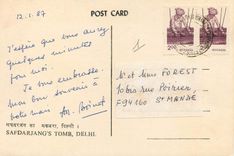 12.1.87
POST CARD
J'espère que vous aurez
quelques minutes
pour moi.
Je vous embrasse.
mon bon souvenir à
votre maman
Mr et Mme FOREST
10 bis rue Poirier
F94160 St MANDÉ
सफदरजंग का मकबरा, दिल्ली।
SAFDARJANG'S TOMB, DELHI.